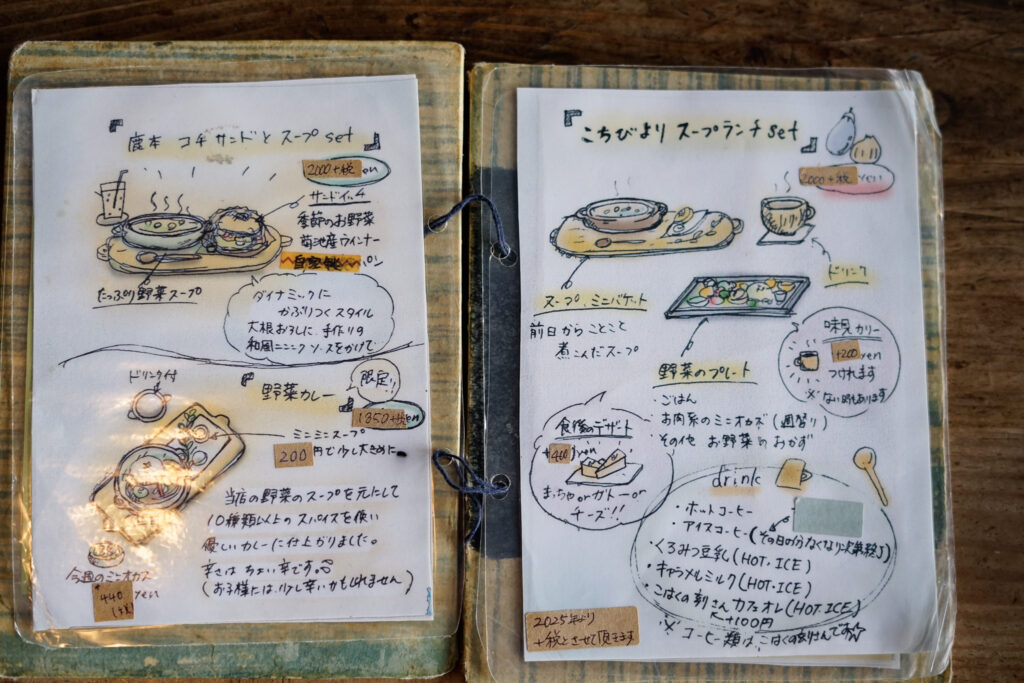 鹿本 コチサンドとスープset
2000+税 en
サンドイッチ
季節のお野菜
菊池産ウインナー
パン
たっぷり野菜スープ
ダイナミックに
かぶりつくスタイル
大根おろしに、手作りの
和風ニンニクソースをかけて
ドリンク付
野菜カレー
限定!!
1350+税en
ミニミニスープ
200円で少し大きめに
当店の野菜のスープを元にして
10種類以上のスパイスを使い
優しいカレーに仕上がりました。
辛さは ちょい辛です。
(お子様には、少し辛いかもしれません)
今週のミニオカズ
440 yen
こちびより スープランチset
2000+税 yen
ドリンク
スープ、ミニバケット
前日から ことこと
煮こんだスープ
味見カリー
+200yen
つけれます
※ない時もあります
野菜のプレート
・ごはん
・お肉系のミニオカズ(週替り)
・その他 お野菜のおかず
食後のデザート
+400yen
まっちゃorガトーor
チーズ!!
drink
・ホットコーヒー
・アイスコーヒー(その日の分なくなり次第終了)
・くるみっ豆乳(HOT.ICE)
・キャラメルミルク(HOT.ICE)
・こはくの刻さんカフェオレ(HOT.ICE)
+100円
※コーヒー類は、こはくの刻さんです
2025年より
+税とさせて頂きます